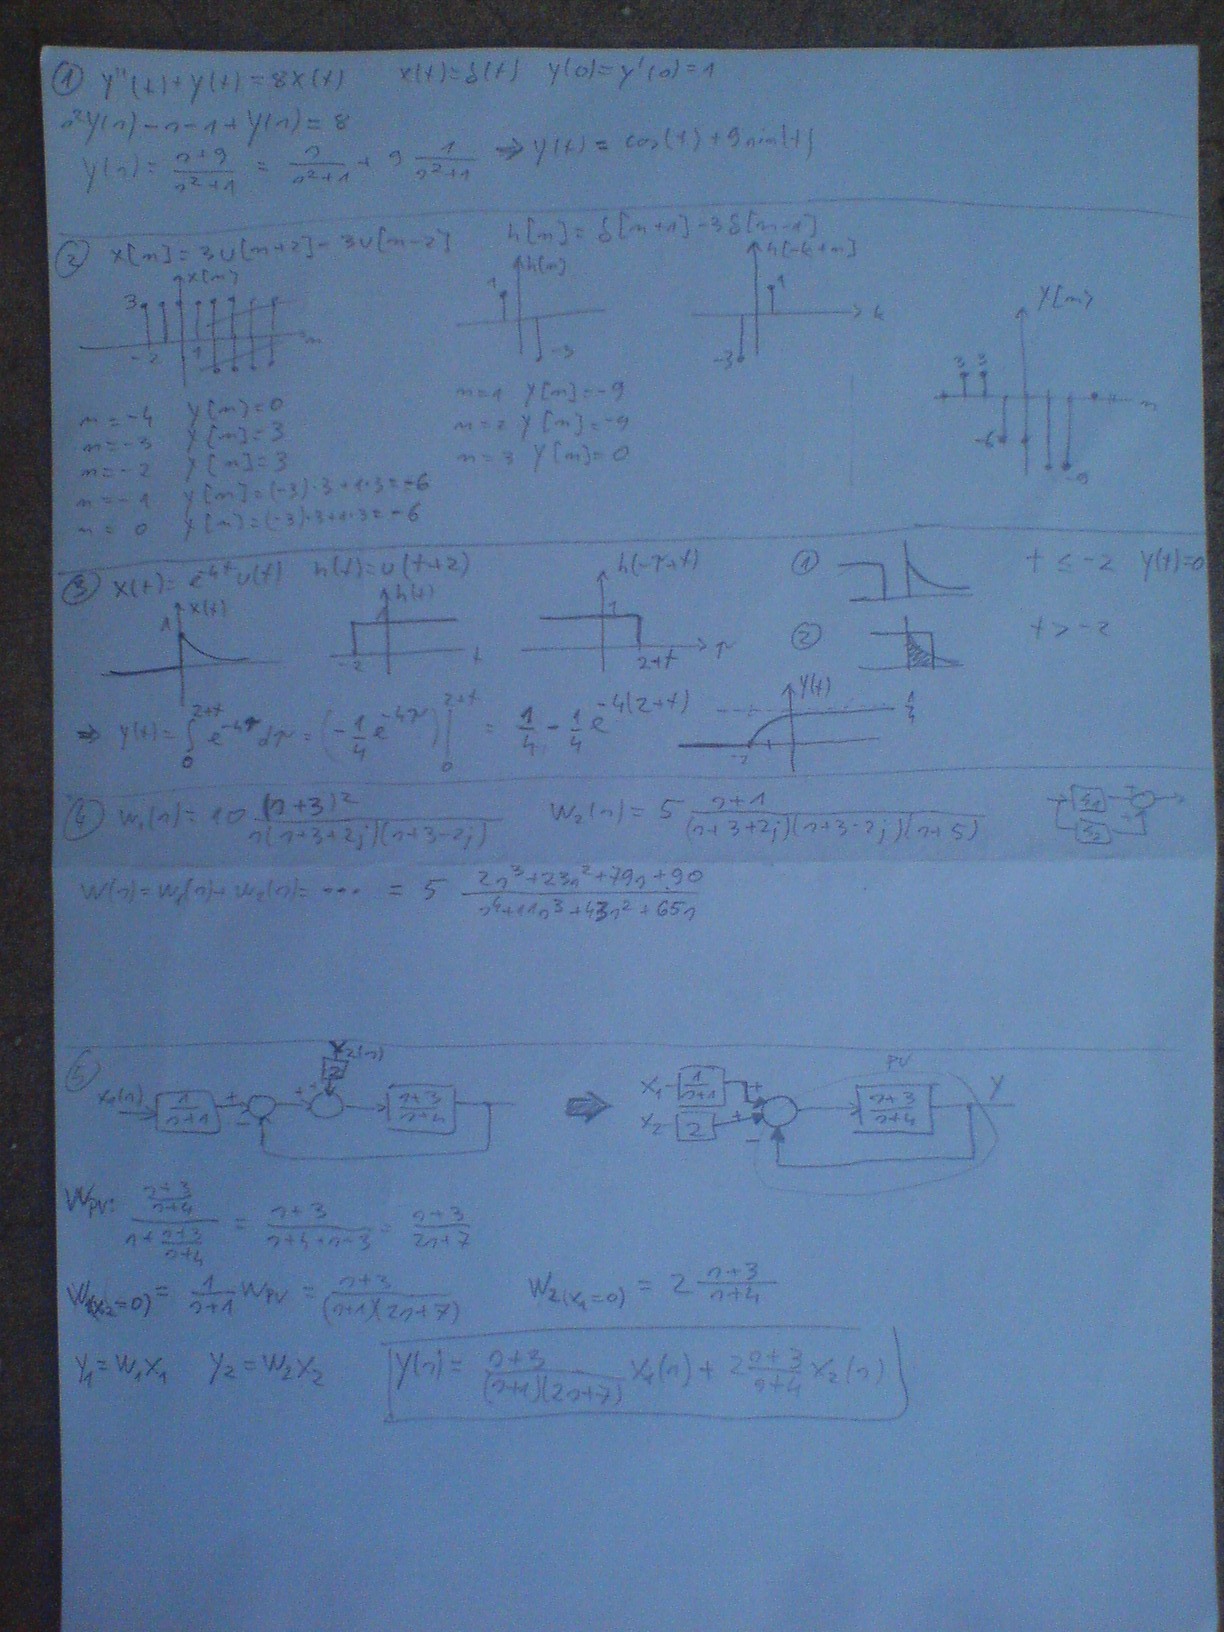 ① y''(t)+y(t)=8x(t) x(t)=δ(t) y(0)=y'(0)=1
s²Y(s)-s-1+Y(s)=8
Y(s)= (s+9)/(s²+1) = s/(s²+1) + 9 1/(s²+1) ⇒ y(t)= cos(t)+9sin(t)
② x[n]=3u[n+2]-3u[n-2] h[n]=δ[n+1]-3δ[n-1]
x[n] h[n] h[-k+n] y[n]
3 -2 1 n
1 -3
1 -3 k
3 3 -6 -9 n
n=-4 y[n]=0
n=-3 y[n]=3
n=-2 y[n]=3
n=-1 y[n]=(-3)·3+1·3=-6
n=0 y[n]=(-3)·3+1·3=-6
n=1 y[n]=-9
n=2 y[n]=-9
n=3 y[n]=0
③ x(t)=e^{-4t}u(t) h(t)=u(t+2) h(-τ+t) ① t≤-2 y(t)=0
x(t) 1 h(t) -2 t 1 2+t τ ② t>-2
⇒ y(t)= ∫₀^{2+t} e^{-4τ}dτ = (-1/4 e^{-4τ})|₀^{2+t} = 1/4 - 1/4 e^{-4(2+t)} y(t) 1/4 -2
④ W₁(s)=10 (s+3)²/(s(s+3+2j)(s+3-2j)) W₂(s)=5 (s+1)/((s+3+2j)(s+3-2j)(s+5)) S1 S2 + +
W(s)=W₁(s)+W₂(s)= ... = 5 (2s³+23s²+79s+90)/(s⁴+11s³+43s²+65s)
⑤ X₂(s) 2 PV
X₁(s) 1/(s+1) + - + + (s+3)/(s+4) ⇒ X₁ 1/(s+1) + X₂ 2 + - (s+3)/(s+4) Y
W_PV: ((s+3)/(s+4))/(1+(s+3)/(s+4)) = (s+3)/(s+4+s+3) = (s+3)/(2s+7)
W₁(x₂=0) = 1/(s+1) W_PV = (s+3)/((s+1)(2s+7)) W₂(x₁=0) = 2 (s+3)/(s+4)
Y₁=W₁X₁ Y₂=W₂X₂ Y(s)= (s+3)/((s+1)(2s+7)) X₁(s) + 2 (s+3)/(s+4) X₂(s)